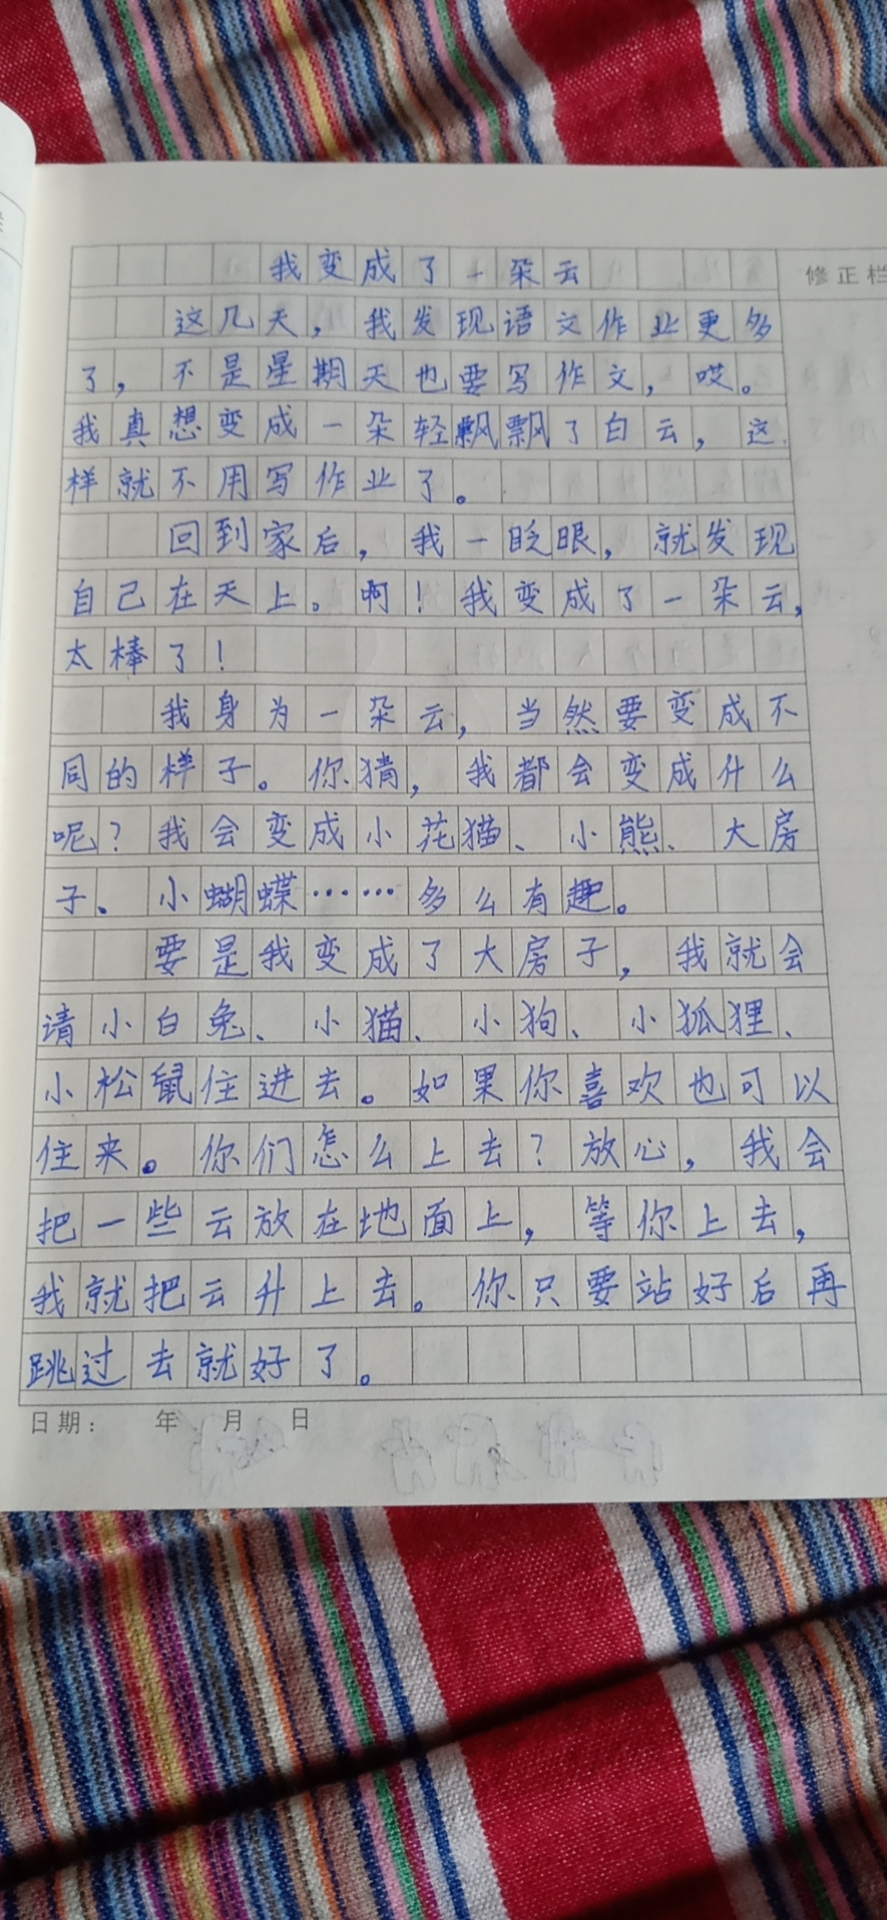 我变成了一朵云
修正栏
这几天，我发现语文作业更多
了，不是星期天也要写作文，哎。
我真想变成一朵轻飘飘了白云，这
样就不用写作业了。
回到家后，我一眨眼，就发现
自己在天上。啊！我变成了一朵云，
太棒了！
我身为一朵云，当然要变成不
同的样子。你猜，我都会变成什么
呢？我会变成小花猫、小熊、大房
子、小蝴蝶……多么有趣。
要是我变成了大房子，我就会
请小白兔、小猫、小狗、小狐狸、
小松鼠住进去。如果你喜欢也可以
住来。你们怎么上去？放心，我会
把一些云放在地面上，等你上去，
我就把云升上去。你只要站好后再
跳过去就好了。
日期： 年 月 日